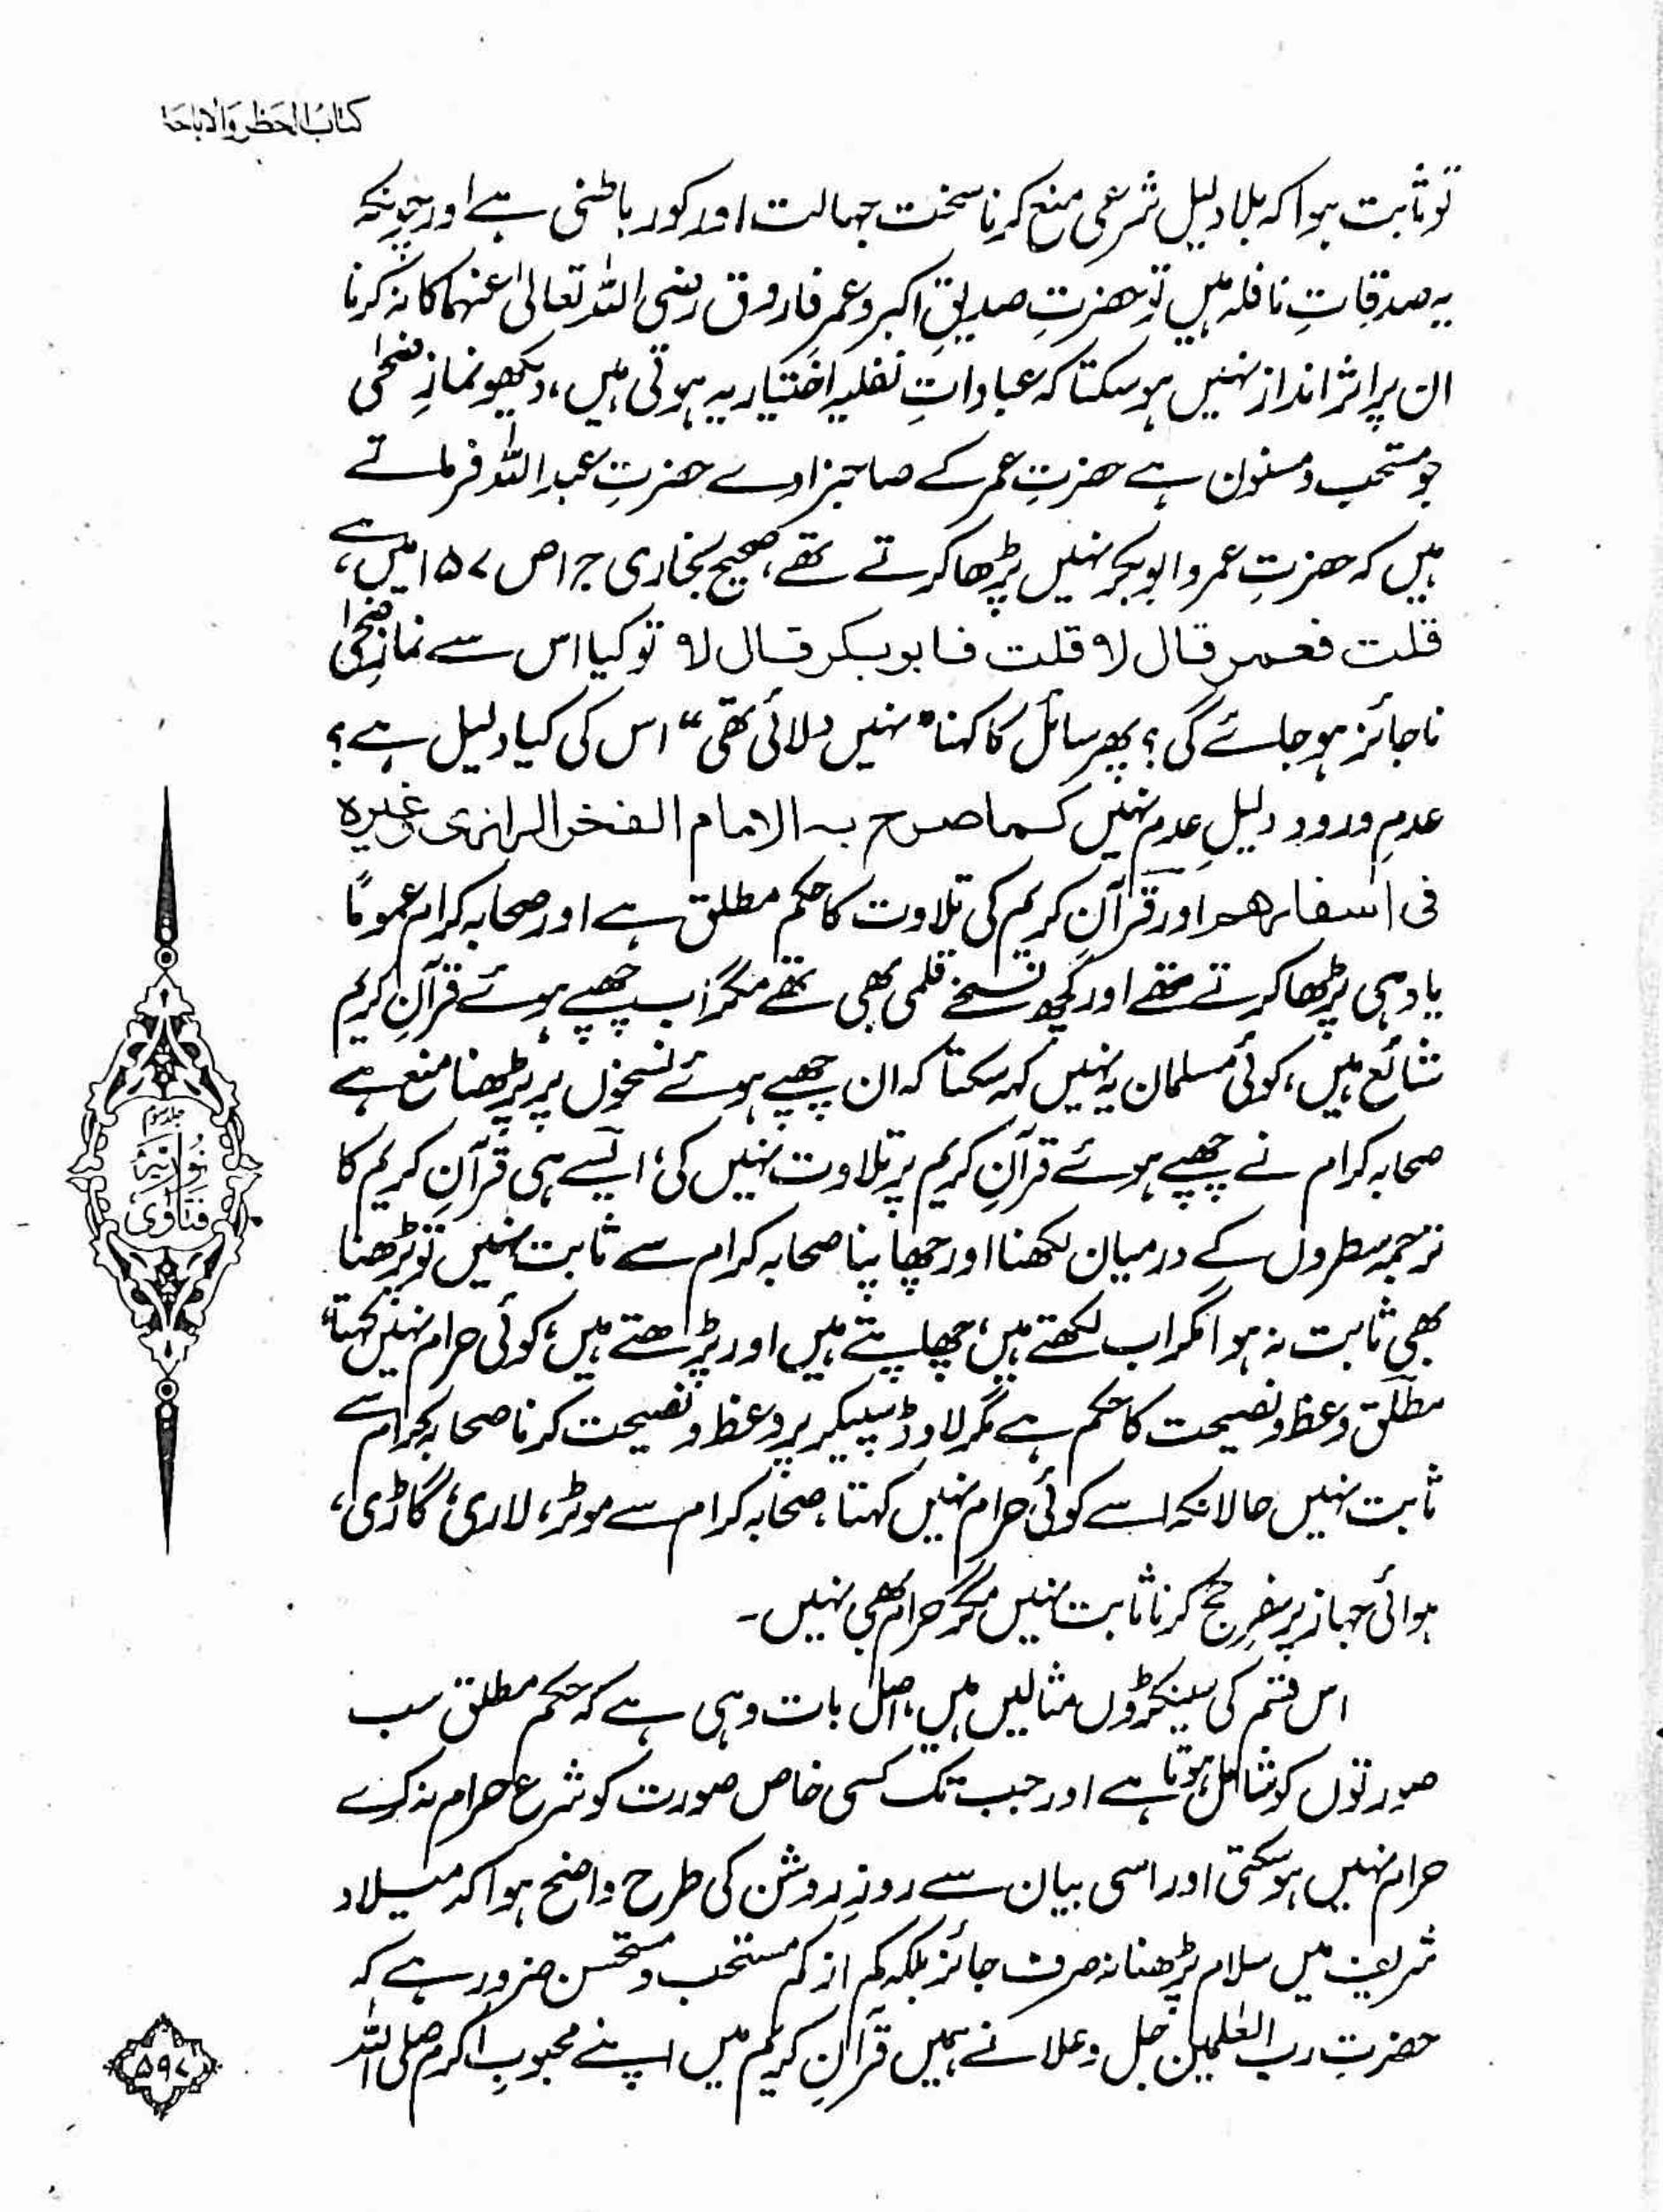 کتاب الحظر والاباحۃ
تو ثابت ہوا کہ بلا دلیل شرعی منع کرنا سخت جہالت اور کور باطنی ہے اور چونکہ
یہ صدقاتِ نافلہ ہیں تو حضرتِ صدیقِ اکبر و عمر فاروق رضی اللہ تعالیٰ عنہما کا نہ کرنا
ان پر اثر انداز نہیں ہو سکتا کہ عباداتِ نفلیہ اختیاریہ ہوتی ہیں، دیکھو نمازِ ضحٰی
جو مستحب و مسنون ہے حضرتِ عمر کے صاحبزادے حضرتِ عبداللہ فرماتے
ہیں کہ حضرتِ عمر و ابوبکر نہیں پڑھا کرتے تھے، صحیح بخاری ج۱ ص ۱۵۷ میں ہے،
قلت فعمر قال لا قلت فابوبکر قال لا تو کیا اس سے نمازِ ضحٰی
ناجائز ہو جائے گی؟ پھر سائل کا کہنا "نہیں دلائی تھی" اس کی کیا دلیل ہے؟
عدمِ ورود دلیلِ عدم نہیں کما صرح بہ الامام الفخر الرازی وغیرہ
فی اسفارھم اور قرآنِ کریم کی تلاوت کا حکم مطلق ہے اور صحابہ کرام عموماً
یاد ہی پڑھا کرتے تھے اور کچھ نسخے قلمی بھی تھے مگر اب چھپے ہوئے قرآنِ کریم
شائع ہیں، کوئی مسلمان یہ نہیں کہہ سکتا کہ ان چھپے ہوئے نسخوں پر پڑھنا منع ہے
صحابہ کرام نے چھپے ہوئے قرآنِ کریم پر تلاوت نہیں کی، ایسے ہی قرآنِ کریم کا
ترجمہ سطروں کے درمیان لکھنا اور چھاپنا صحابہ کرام سے ثابت نہیں تو پڑھنا
بھی ثابت نہ ہوا مگر اب لکھتے ہیں، چھاپتے ہیں اور پڑھتے ہیں، کوئی حرام نہیں کہتا،
مطلق وعظ و نصیحت کا حکم ہے مگر لاوڈ سپیکر پر وعظ و نصیحت کرنا صحابہ کرام سے
ثابت نہیں حالانکہ اسے کوئی حرام نہیں کہتا، صحابہ کرام سے موٹر، لاری، گاڑی،
ہوائی جہاز پر سفرِ حج کرنا ثابت نہیں مگر حرام بھی نہیں۔
اس قسم کی سینکڑوں مثالیں ہیں، اصل بات وہی ہے کہ حکم مطلق سب
صورتوں کو شامل ہوتا ہے اور جب تک کسی خاص صورت کو شرع حرام نہ کرے
حرام نہیں ہو سکتی اور اسی بیان سے روزِ روشن کی طرح واضح ہوا کہ میلاد
شریف میں سلام پڑھنا نہ صرف جائز بلکہ کم از کم مستحب و مستحسن ضرور ہے کہ
حضرتِ رب العٰلمین جل و علا نے ہمیں قرآنِ کریم میں اپنے محبوبِ اکرم صلی اللہ
جلد سوم
نوریہ
فتاویٰ
۵۹۷